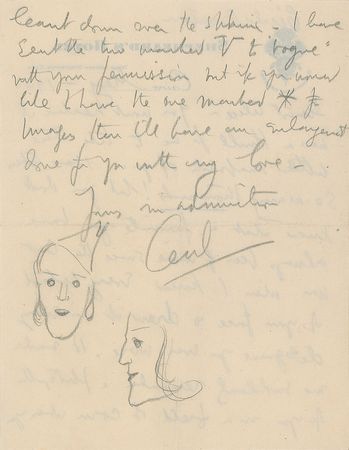 down over the Sphinx - I have
sent the two marked "V" to "Vogue"
with your permission but if you would
like to have the one marked *
then I'll have an enlargement
done for you with my love -
Yours in admiration
Cecil